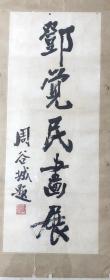 鄧覚民畫展
周谷城題